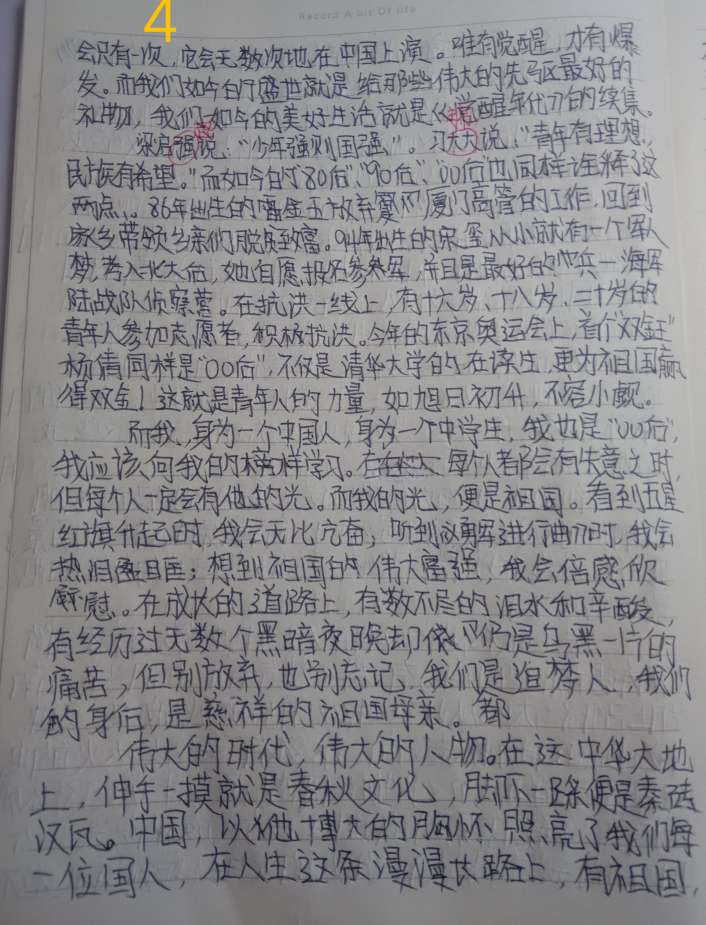 4
Record A bit Of life
会只有一次,它会无数次地在中国上演。唯有觉醒,才有爆
发。而我们如今的盛世就是给那些伟大的先驱最好的
礼物,我们如今的美好生活就是《觉醒年代》的续集。
梁启超说:“少年强则国强”。习大大说:“青年有理想,
民族有希望。”而如今的“80后”、“90后”、“00后”也同样诠释了这
两点。86年出生的 放弃 厦门高管的工作,回到
家乡带领乡亲们脱贫致富。94年出生的宋玺从小就有一个军人
梦,考入北大后,她自愿报名参军,并且是最好的 兵—海军
陆战队侦察营。在抗洪一线上,有十六岁、十八岁、二十岁的
青年人参加志愿者,积极抗洪。今年的东京奥运会上,首个“双金王”
杨倩同样是“00后”,不仅是清华大学的在读生,更为祖国赢
得双金!这就是青年人的力量,如旭日初升,不容小觑。
而我,身为一个中国人,身为一个中学生,我也是“00后”,
我应该向我的榜样学习。在 每个人都会有失意之时,
但每个人一定会有他的光。而我的光,便是祖国。看到五星
红旗升起时,我会无比亢奋;听到义勇军进行曲 时,我会
热泪盈眶;想到祖国的伟大富强,我会倍感欣
慰。在成长的道路上,有数不尽的泪水和辛酸,
有经历过无数个黑暗夜晚却 仍是乌黑一片的
痛苦,但别放弃,也别忘记,我们是追梦人,我们
的身后,是慈祥的祖国母亲。都
伟大的时代,伟大的人物。在这中华大地
上,伸手一摸就是春秋文化,脚下一踩便是秦砖
汉瓦。中国,以他博大的胸怀照亮了我们每
一位国人,在人生这条漫漫长路上,有祖国,